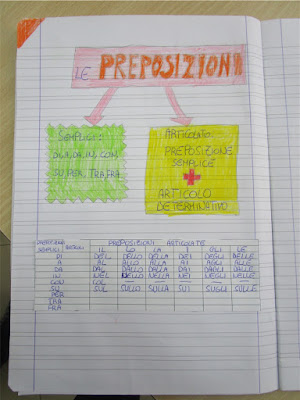 LE PREPOSIZIONI
SEMPLICI:
DI, A, DA, IN, CON,
SU, PER, TRA, FRA
ARTICOLATO:
PREPOSIZIONE
SEMPLICE
+
ARTICOLO
DETERMINATIVO
PREPOSIZIONI ARTICOLATE
SEMPLICI IL LO LA I GLI LE
DI DEL DELLO DELLA DEI DEGLI DELLE
A AL ALLO ALLA AI AGLI ALLE
DA DAL DALLO DALLA DAI DAGLI DALLE
IN NEL NELLO NELLA NEI NEGLI NELLE
CON COL
SU SUL SULLO SULLA SUI SUGLI SULLE
PER
TRA
FRA